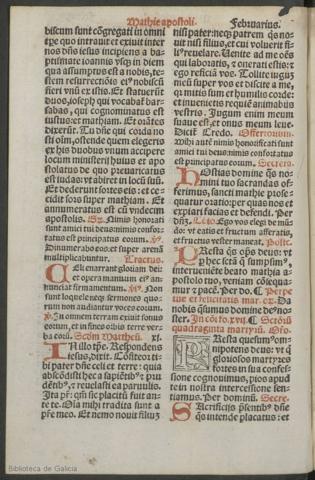 Mathie apostoli.
Februarius.
discum sunt cõgregati in omni
tꝑe quo intrauit et exiuit inter
nos dñs iesus incipiens a ba-
ptismate ioannis vsq; in diem
qua assumptus est a nobis, te-
stem resurrectiõis ei⁹ nobiscũ
fieri vnũ ex istis. Et statuerũt
duos, ioseph qui vocabaĩ bar-
sabas, qui cognominatus est
iustus: et mathiam. Et orãtes
dixerũt. Tu dñe qui corda no-
sti oĩm, ostende quem elegeris
ex his duobus vnum accipere
locum ministerij huius et apo-
stolatus de quo preuaricatus
est iudas: vt abiret in locũ suũ.
Et dederunt sortes eis: et ce-
cidit sors super mathiam. Et
annumeratus est cũ vndecim
apostolis. Nimis honorati
sunt amici tui deus: nimis confor-
tatus est principatus eorum.
Dinumerabo eos: et super arenã
multiplicabuntur. Tractus.
Celi enarrant gloriam dei:
et opera manuum ei⁹ an-
nunciat firmamentum. Non
sunt loquele neqz sermones: quo-
rum non audiantur voces eorum.
In omnem terram exiuit sonus
eorum, et in fines orbis terre ver-
ba eorũ. Scðm Mattheũ. xj.
In illo tꝑe. Respondens
iesus, dixit. Cõfiteor ti-
bi pater dñe celi et terre: quia
abscõdisti hec a sapiẽtib⁹ et pru
dẽtib⁹, et reuelasti ea paruulis.
Ita pr̃: qm̃ sic placitũ fuit an-
te te. Oĩa mihi tradita sunt a
pr̃e meo. Et nemo nouit filiuz
nisi pater: neq; patrem q̃s no-
uit nisi filius, et cui voluerit fi-
li⁹ reuelare. Uenite ad me oẽs
qui laboratis, et onerati estis: et
ego reficiã vos. Tollite iuguz
meũ super vos et discite a me,
qr mitis sum et humilis corde:
et inuenietis requiẽ animabus
vestris. Jugum enim meum
suaue est: et onus meum leue.
Dicit̃ Credo. Offertorium.
Mihi autẽ nimis honorificati sunt
amici tui deus: nimis confortatus
est principatus eorum. Secreta.
Hostias domine q̃s no-
mini tuo sacrandas of-
ferimus, sancti mathie prose-
quatur oratio: per quas nos et
expiari facias et defendi. Per
dñz. Cõio. Ego vos elegi de mũ-
do: vt eatis et fructum afferatis,
et fructus vester maneat. Postc.
Presta q̃s oꝑs deus: vt
ꝑ hec sctã q̃ sumpsim⁹,
interueniẽte beato mathia a-
postolo tuo, veniam cõsequa-
mur et pacẽ. Per dõ. Perpe
tue et felicitatis mar. ex. Da
nobis q̃sumus domine de⁹ no-
ster. Sctorũ
quadraginta martyrũ. Oro.
Presta quesum⁹ om-
nipotens deus: vt q̃
gloriosos martyres
fortes in sua confes-
sione cognouimus, pios apud
te in nostra intercessione sen-
tiamus. Per dominũ. Secre.
Sacrificijs p̃sentib⁹ dñe
q̃s intende placatus: et
Biblioteca de Galicia